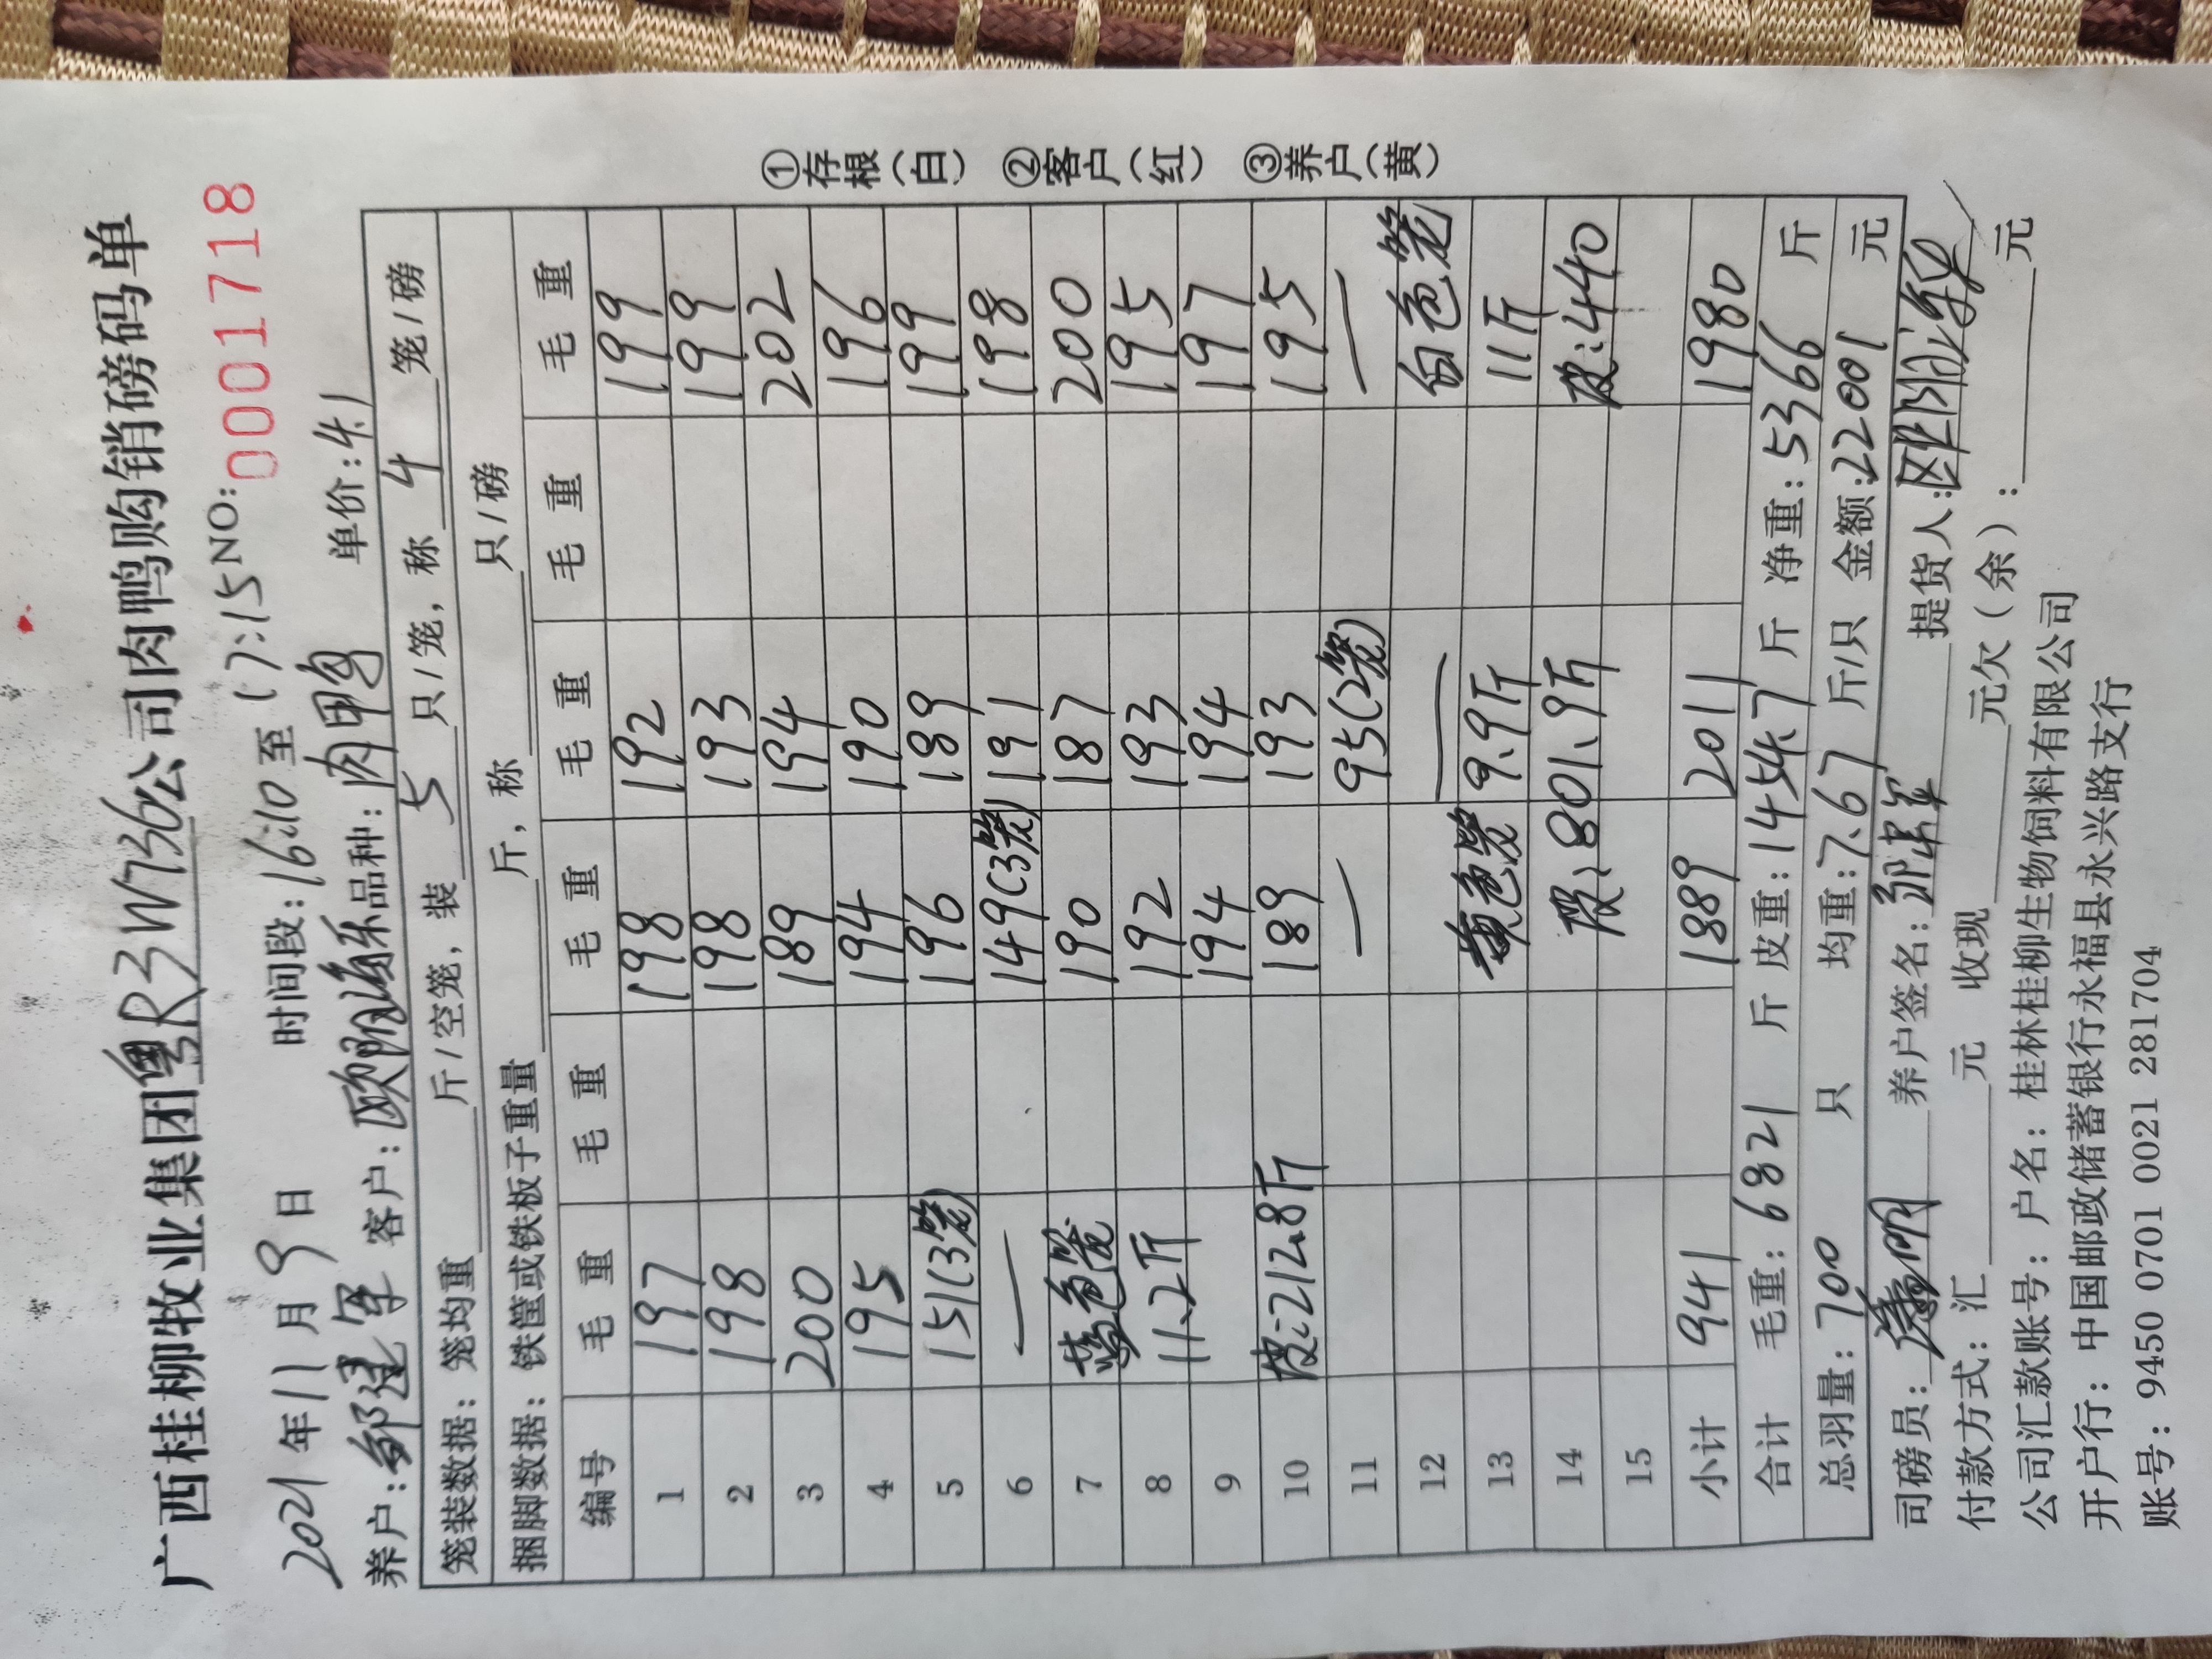 广西桂柳牧业集团粤R3W736公司肉鸭购销磅码单
2021年11月9日 时间段:16:10至17:15 NO: 0001718
养户:邹建军 客户:欧阳海乐 品种:肉鸭 单价:4.1
笼装数据: 笼均重 斤/空笼, 装 5 只/笼, 称 4 笼/磅
捆脚数据: 铁筐或铁板子重量 斤, 称 只/磅
编号 毛重 毛重 毛重 毛重 毛重 毛重
1 197 198 192 199
2 198 198 193 199
3 200 189 194 202
4 195 194 190 196
5 151(3笼) 196 189 199
6 — 149(3笼) 191 198
7 蓝色笼 190 187 200
8 11.2斤 192 193 195
9 194 194 197
10 皮:212.8斤 189 193 195
11 — 95(2笼) —
12 — 白色笼
13 黄色笼 9.9斤 11斤
14 皮:801.9斤 皮:440
15
小计 941 1889 2011 1980
合计 毛重:6821 斤 皮重:1454.7 斤 净重:5366 斤
总羽量:700 只 均重:7.67 斤/只 金额:22001 元
司磅员: 养户签名: 提货人:
付款方式: 汇 元 收现 元欠(余): 元
公司汇款账号: 户名: 桂林桂柳生物饲料有限公司
开户行: 中国邮政储蓄银行永福县永兴路支行
账号: 9450 0701 0021 281704
①存根(白) ②客户(红) ③养户(黄)